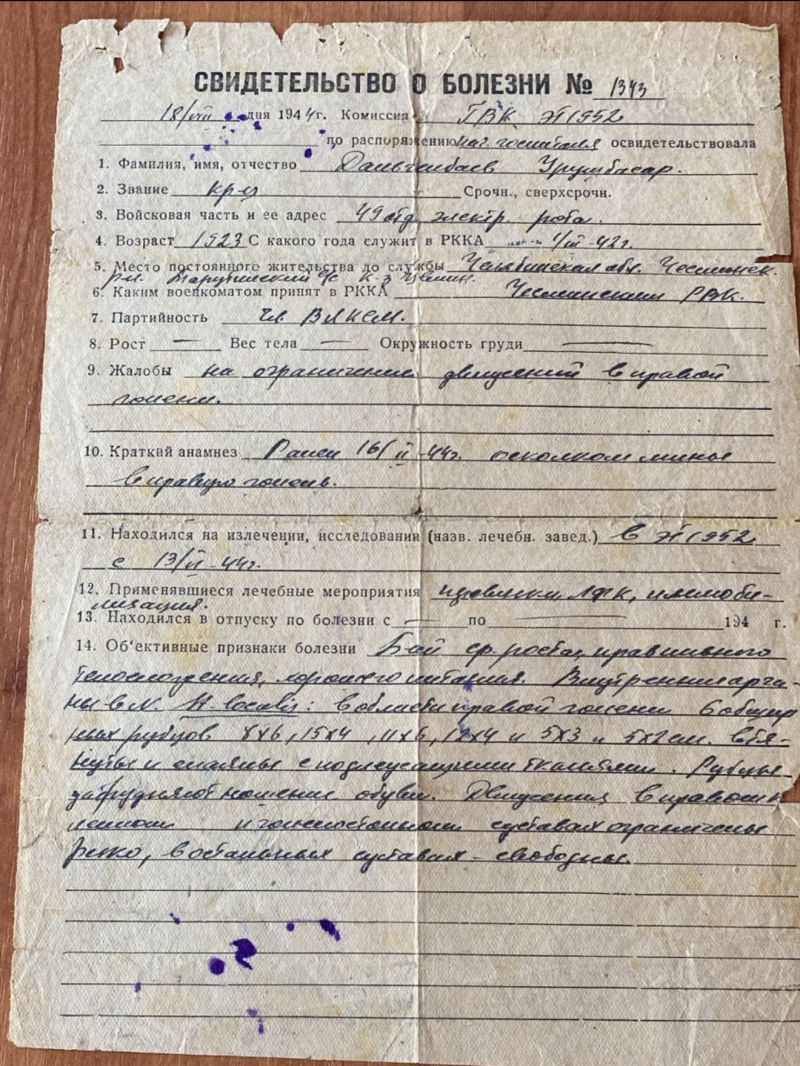 СВИДЕТЕЛЬСТВО О БОЛЕЗНИ № 1343
18/VIII дня 1944 г. Комиссия ГВК ЭГ 1952
по распоряжению нач. госпиталя освидетельствовала
1. Фамилия, имя, отчество
2. Звание кр-ц Срочн., сверхсрочн.
3. Войсковая часть и ее адрес 49 отд. электр. рота.
4. Возраст 1923 С какого года служит в РККА 42 г.
5. Место постоянного жительства до службы Челябинская обл. Чесменск.
р-н
6. Каким военкоматом принят в РККА Чесменским РВК.
7. Партийность чл. ВЛКСМ.
8. Рост — Вес тела — Окружность груди —
9. Жалобы на ограничение движений в правой
голени.
10. Краткий анамнез Ранен 16/II-44г. осколком мины
в правую голень.
11. Находился на излечении, исследовании (назв. лечебн. завед.) в ЭГ 1952
с 13/VI-44г.
12. Применявшиеся лечебные мероприятия перевязки, ЛФК, иммоби-
лизация.
13. Находился в отпуску по болезни с — по — 194 г.
14. Об'ективные признаки болезни Б-ой ср. роста, правильного
телосложения, хорошего питания. Внутренние орга-
ны в N. St. localis: в области правой голени 6 обшир-
ных рубцов 8х6, 15х4, 11х6, 12х4 и 5х3 и 5х2 см. втя-
нуты и спаяны с подлежащими тканями. Рубцы
затрудняют ношение обуви. Движения в правом
и голеностопном суставах ограничены
резко, в остальных суставах - свободны.